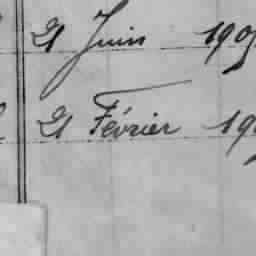 21 Juin 190
21 Février 19